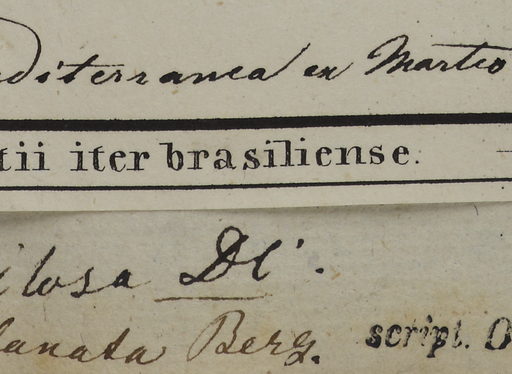 diterranea ex Martio
tii iter brasiliense.
ilosa DC.
lanata Berg. script. O